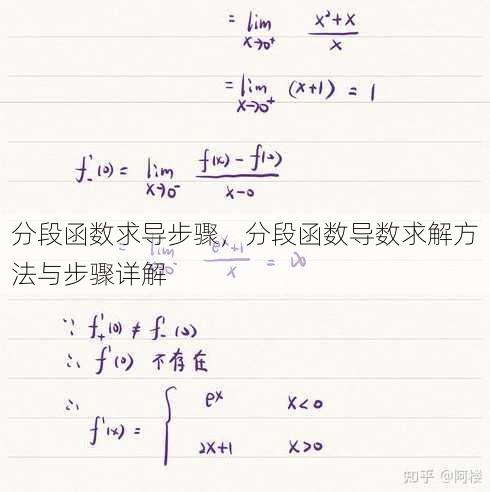 = lim x→0⁺ (x²+x)/x
= lim x→0⁺ (x+1) = 1
f'₋(0) = lim x→0⁻ (f(x)-f(0))/(x-0)
分段函数求导步骤，分段函数导数求解方
法与步骤详解
= lim x→0⁻ (eˣ+1)/x = ∞
∵ f'₊(0) ≠ f'₋(0)
∴ f'(0) 不存在
∴ f'(x) = { eˣ x<0
2x+1 x>0
知乎 @阿楼